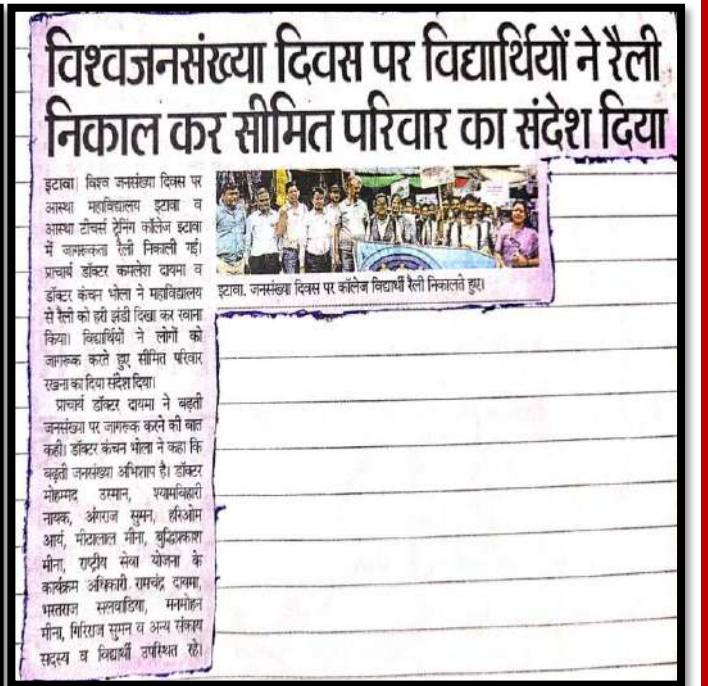 विश्वजनसंख्या दिवस पर विद्यार्थियों ने रैली
निकाल कर सीमित परिवार का संदेश दिया
इटावा| विश्व जनसंख्या दिवस पर
आस्था महाविद्यालय इटावा व
आस्था टीचर्स ट्रेनिंग कॉलेज इटावा
में जागरूकता रैली निकाली गई।
प्राचार्य डॉक्टर कमलेश दायमा व
डॉक्टर कंचन भोला ने महाविद्यालय
से रैली को हरी झंडी दिखा कर रवाना
किया। विद्यार्थियों ने लोगों को
जागरूक करते हुए सीमित परिवार
रखना का दिया संदेश दिया।
प्राचार्य डॉक्टर दायमा ने बढ़ती
जनसंख्या पर जागरूक करने की बात
कही। डॉक्टर कंचन भोला ने कहा कि
बढ़ती जनसंख्या अभिशाप है। डॉक्टर
मोहम्मद उस्मान, श्यामबिहारी
नायक, अंगराज सुमन, हरिओम
आर्य, मीठालाल मीना, बुद्धिप्रकाश
मीना, राष्ट्रीय सेवा योजना के
कार्यक्रम अधिकारी रामचंद्र दायमा,
भरतराज सलवाडिया, मनमोहन
मीना, गिरिराज सुमन व अन्य संकाय
सदस्य व विद्यार्थी उपस्थित रहे।
इटावा. जनसंख्या दिवस पर कॉलेज विद्यार्थी रैली निकालते हुए।